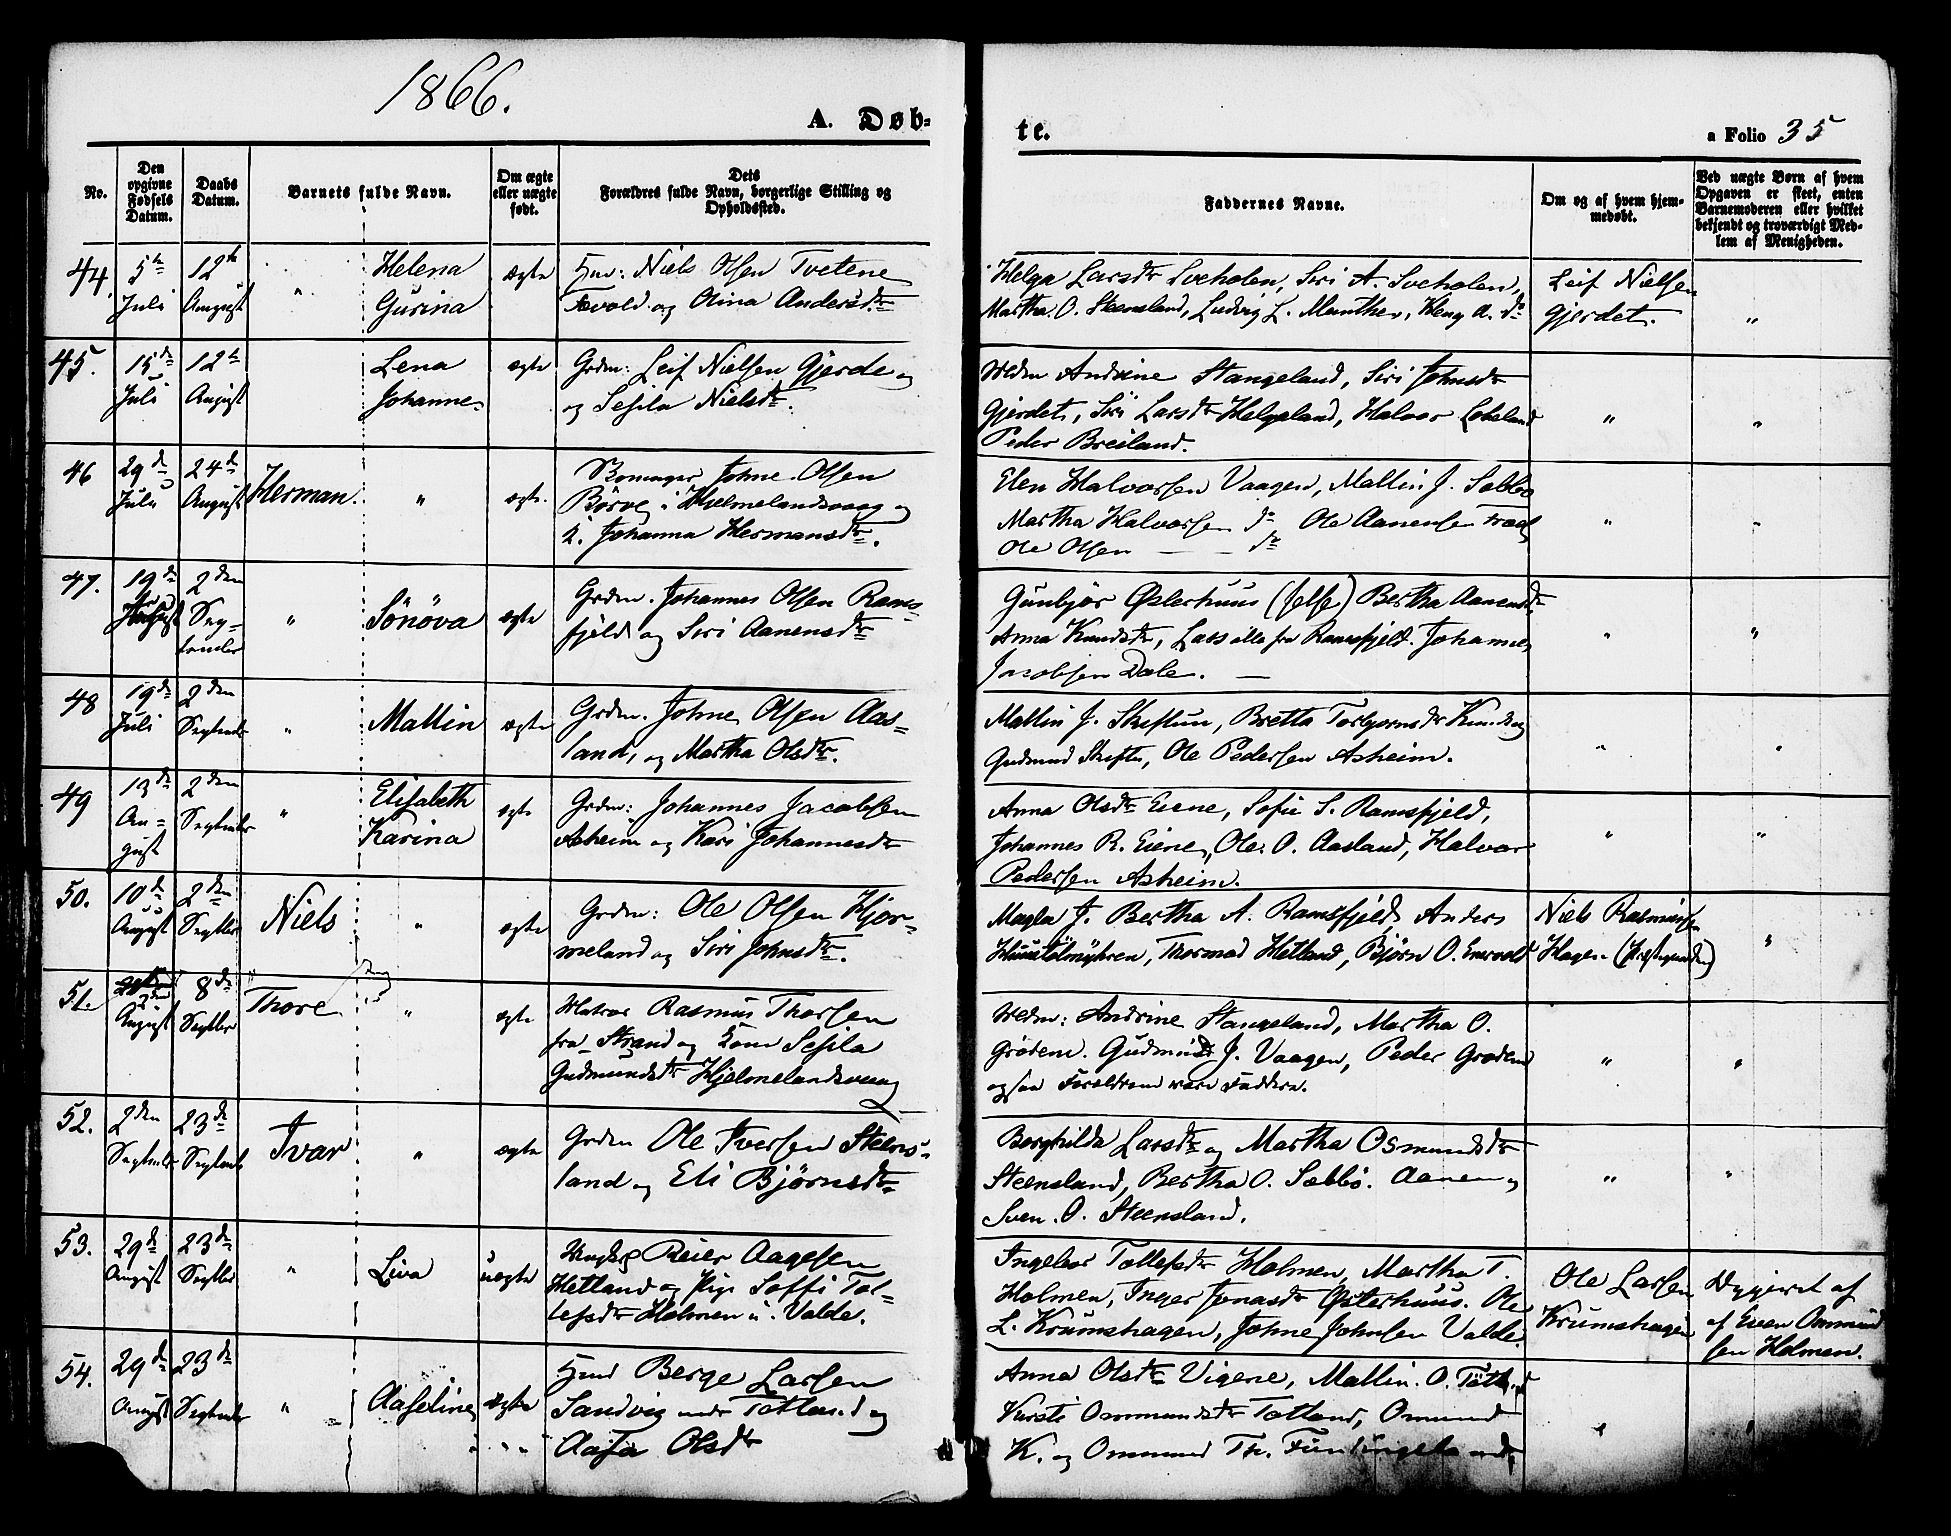 1866.
A. Døb-
te.
a Folio 35
No.
Den opgivne Fødsels Datum.
Daabs Datum.
Barnets fulde Navn.
Om ægte eller uægte født.
Dets Forældres fulde Navn, borgerlige Stilling og Opholdssted.
Faddernes Navne.
Om og af hvem hjemmedøbt.
Ved uægte Børn af hvem Opgaven er skeet, enten Barnemoderen eller hvilket bekjendt og troværdigt Medlem af Menigheden.
44. 5te Juli 12te August " Helena Gurina ægte
Hmd: Niels Olsen Tvetene
og Olina Andersdtr
Helga Larsdtr Sveholen, Siri A. Sveholen,
Martha O. Steensland, Ludvig L. Manthe, A. do
Leif Nielsen
Gjerdet. "
45. 15de Juli 12te August Lena Johanne ægte
Grdm: Leif Nielsen Gjerde og
og Sesila Nielsdtr.
Mdm Andrine Stangeland, Siri Johnsdtr
Gjerdet, Siri Larsdtr Helgeland, Halvor
Peder Breiland. " "
46 29de Juli 24de August Herman " ægte
Johne Olsen
Börve i Hjelmelandsvaag og
K. Johanna Hermansdtr.
Elen Halvorsen Vaagen, Mallin J. Sæbbø
Martha Halvorsen do Ole Aanensen
Ole Olsen — — do " "
47. 19de August 2den September " Sönöva ægte
Grdm. Johannes Olsen Rams-
fjeld og Siri Aanensdtr
Gunbjør Østerhuus (selse) Bertha Aanensdtr
Anna Knudsdtr, Lars alle fra Ramsfjeld. Johannes
Jacobsen Dale. — " "
48 19de Juli 2den Septemb " Mallin ægte
Grdm. Johne Olsen Aas-
land, og Martha Olsdtr.
Mallin J. Skiftun, Bretta Torbjornsdtr
Gudmund Skiftu, Ole Pedersen Asheim. " "
49 13de August 2den September " Elisabeth Karina ægte
Grdm: Johannes Jacobsen
Asheim og Kari Johannesdtr
Anna Olsdtr Eiene, Sofie S. Ramsfjeld,
Johannes R. Eiene, Ole O. Aasland, Halvor
Pedersen Asheim. " "
50. 10de August 2den Septbr Niels " ægte
Grdm: Ole Olsen Hjor-
meland og Siri Johnsdtr.
Magla J. Bertha A. Ramsfjeld, Anders
Thormod Hetland, Björn O.
Niels Rasmussen
Hagen "
51. 2den August 8de Septbr Thore " ægte
Matros Rasmus Thorsen
fra Strand og Kone Sesila
Gudmundsdtr Hjelmelandsvaag
Mdm: Andrine Stangeland, Martha O.
Grødem. Gudmund J. Vaagen, Peder Grødem
ogsaa Forældrene vare Faddere. " "
52. 2den Septembr 23de Septemb Ivar " ægte
Grdm Ole Iversen Steens-
land og Eli Bjørnsdtr
Berghilda Larsdtr og Martha Osmundsdtr
Steensland, Bertha O. Sæbbö. Aanen og
Sven O. Steensland. " "
53. 29de August 23de Septbr " Liva uægte
Ungkrl Reier Aagesen
Hetland og Pige Soffi Tol-
lefsdtr Holmen u. Valde.
Ingebor Tollefsdtr Holmen, Martha T.
Holmen, Inger Jonasdtr Østerhuus. Ole
L. Krumshagen, Johne Johnsen Valde.
Ole Larsen
Krumshagen
Opgivet af
af Even Ommund
sen Holmen.
54. 29de August 23de Septembr " Aaseline ægte
Hmd Berge Larsen
Sandvig under Tøtland og
Aasa Olsdtr
Anna Olsdtr Vigene, Mallin O. Tøtland
Kirsti Ommundsdtr Tøtland, Omund
K. og Ommund Th. " "